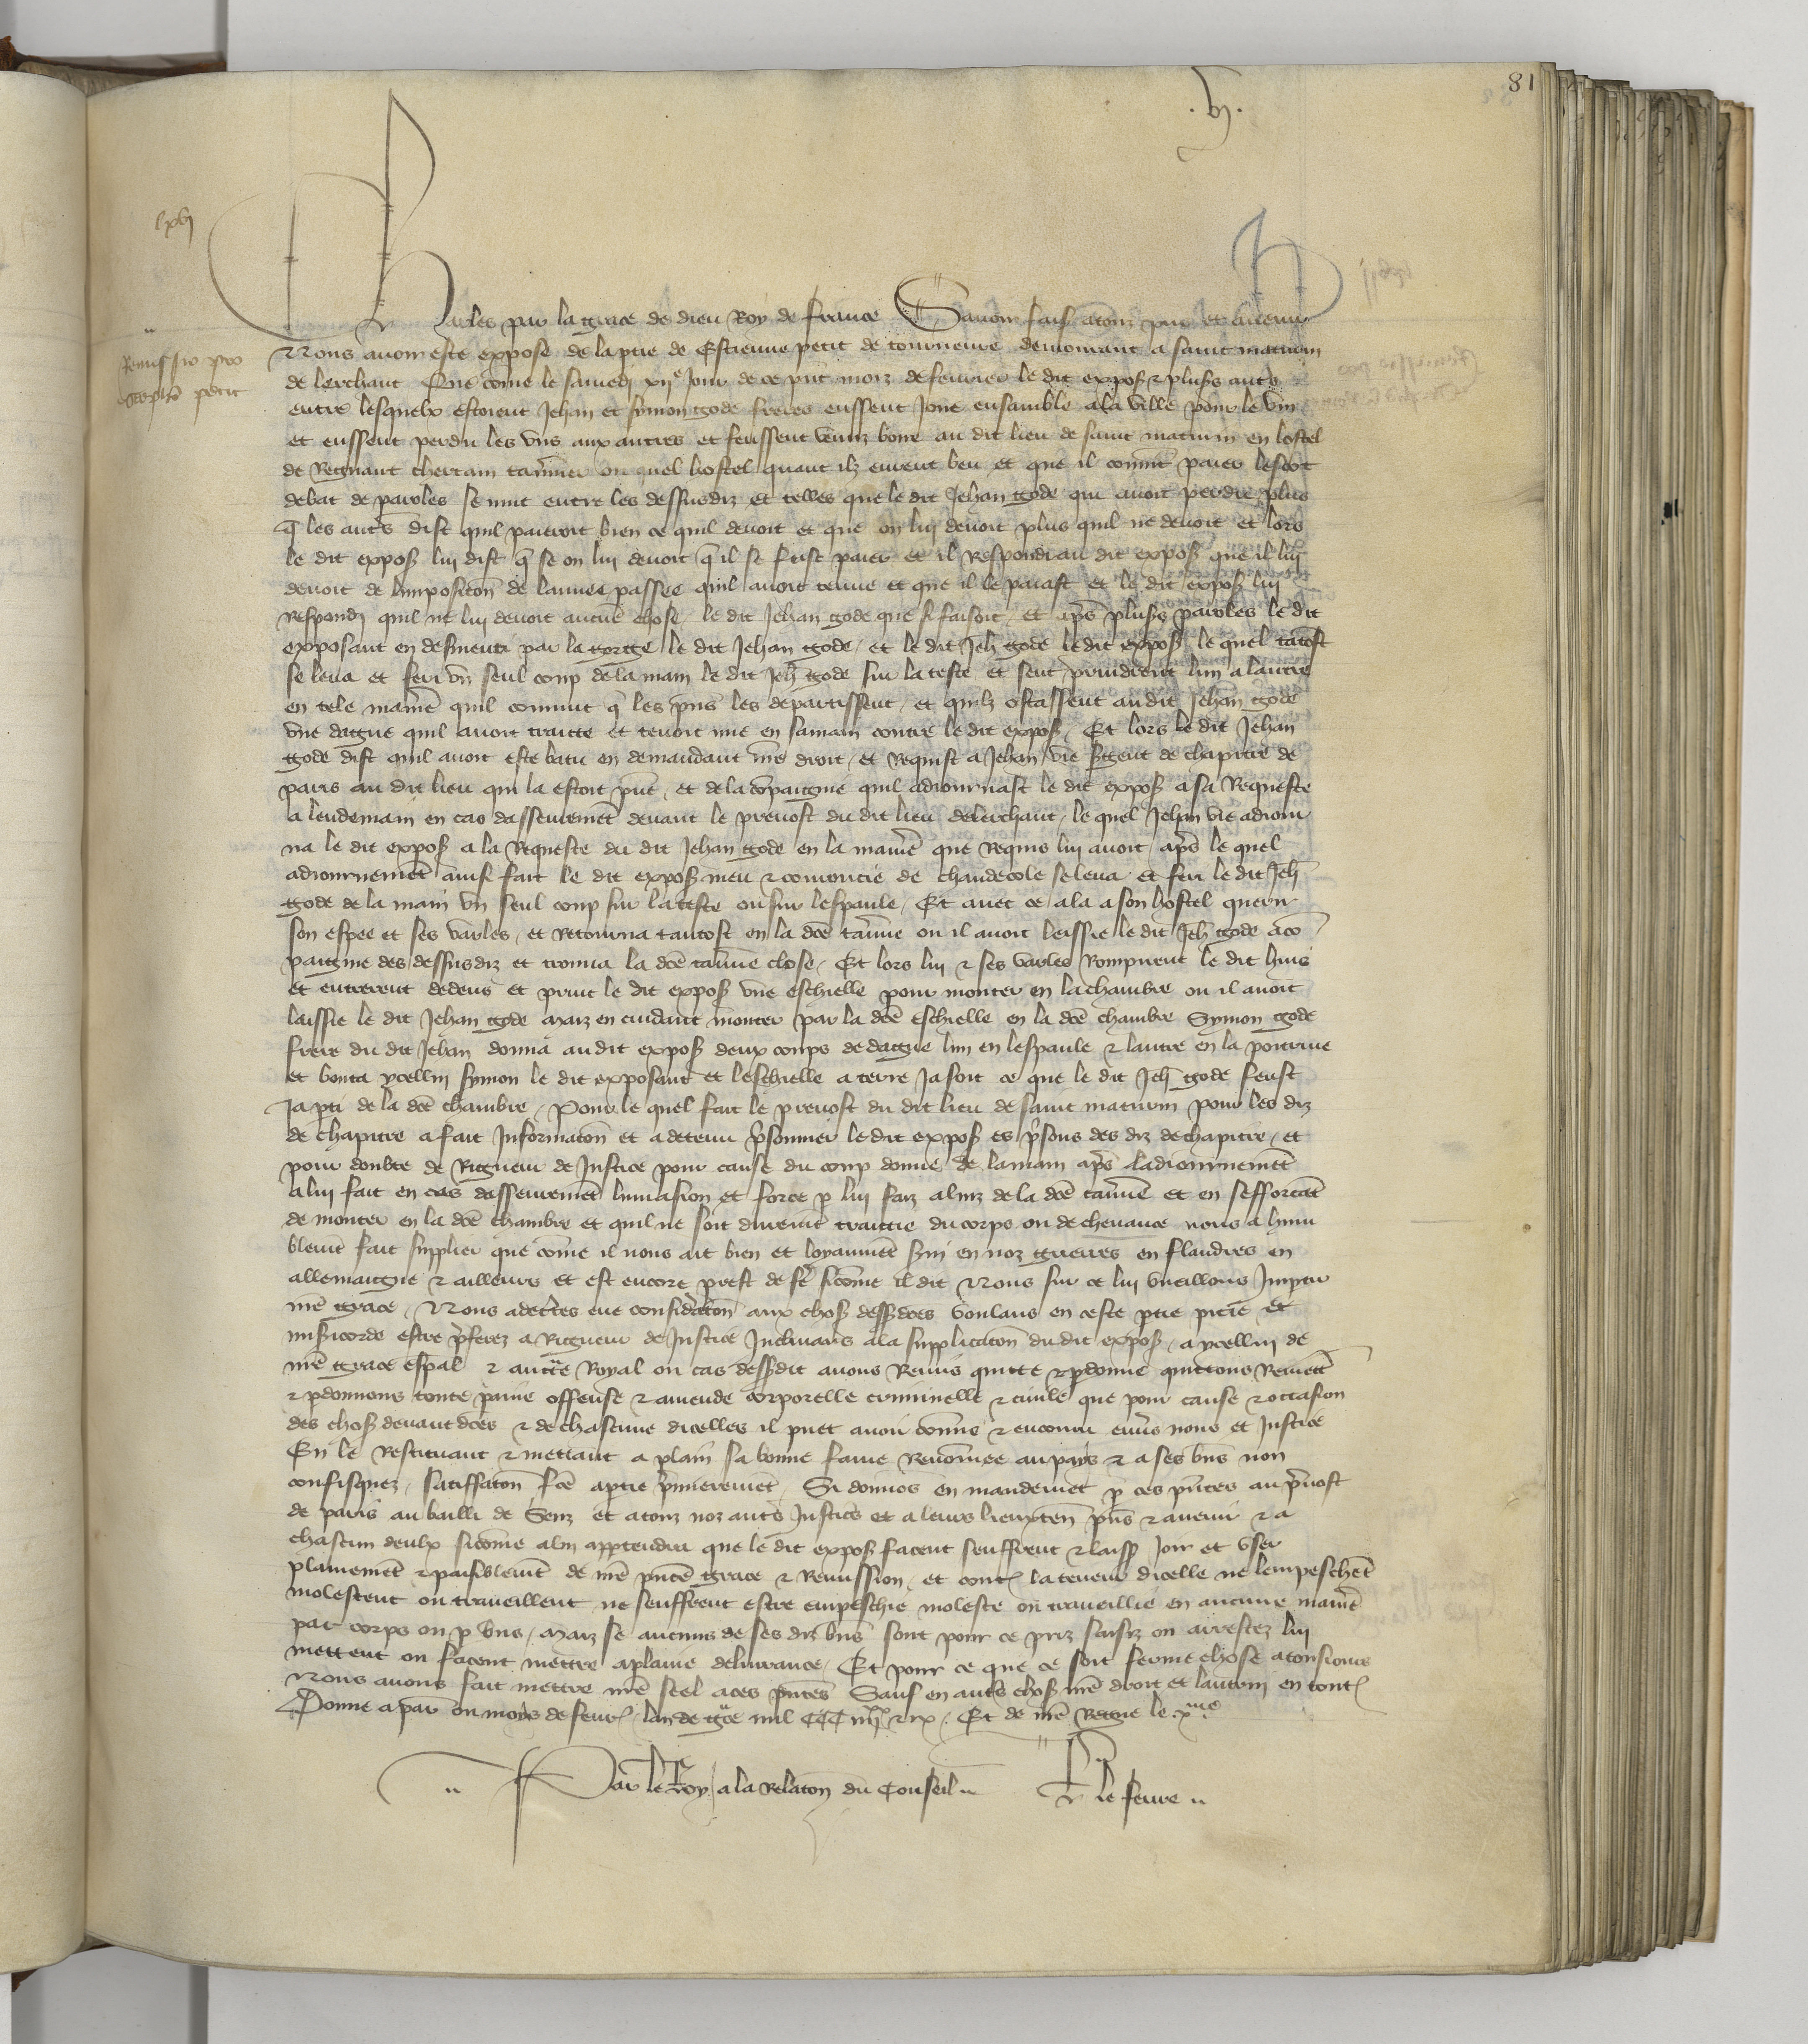 81
.vi.
lxvi
Remissio pro
Stephano petit
Charles par la grace de dieu Roy de france Savoir faisons a touz presens et avenir
Nous avoir este expose de la partie de Estienne petit de tourneure demourant a saint maturin
de lerchant Que come le samedi xiie jour de ce present mois de fevrier le dit exposant et plusers autres
entre lesquelx estoient Jehan et Symon gode freres eussent Joué ensamble a la ville pour le vin
et eussent perdu les uns aux autres et feussent venuz boire au dit lieu de saint maturin en lostel
de Regnaut tavernier ou quel hostel quant ilz eurent beu et que il convint paier lescot
debat de paroles se mut entre les dessusdiz et telles que le dit Jehan gode qui avoit perdu plus
que les autres dist quil paieroit bien ce quil devoit et que on lui devoit plus quil ne devoit et lors
le dit exposant lui dist que se on lui devoit que il se feist paier et il Respondi au dit exposant que il lui
devoit de limposicion de lannee passee quil avoit tenue et que il le paiast et le dit exposant lui
Respondi quil ne lui devoit aucune chose / le dit Jehan gode que si faisoit / et apres plusers paroles le dit
exposant en desmenti par la gorge le dit Jehan gode / et le dit Jehan gode le dit exposant le quel tantost
se leva et feri un seul coup de la main le dit Jehan gode sur la teste et sent prindrent lun a lautre
en tele maniere quil convint que les presens les departissent / et quilz ostassent au dit Jehan gode
une dague quil avoit traicte et tenoit nue en sa main contre le dit exposant / Et lors le dit Jehan
gode dist quil avoit este batu en demandant nostre droit / et Requist a Jehan vie sergent de chapitre de
paris au dit lieu qui la estoit present / et de la compaignie quil adjournast le dit exposant a sa Requeste
a lendemain en cas dasseurement devant le prevost du dit lieu de lerchant / le quel Jehan vie adjour
na le dit exposant a la Requeste du dit Jehan gode en la maniere que Requis lui avoit / apres le quel
adjournement ainsi fait le dit exposant meu et couroucie de chaudecole se leva et feri le dit Jehan
gode de la main un seul coup sur la teste ou sur lespaule / Et avec ce ala a son hostel querir
son espee et ses varles / et Retourna tantost en la dicte taverne ou il avoit leissie le dit Jehan gode acom
paignie des dessusdiz et trouva la dicte taverne close / Et lors lui et ses varles Rompirent le dit huis
et entrerent dedens et print le dit exposant une eschielle pour monter en la chambre ou il avoit
laissie le dit Jehan gode maiz en cuidant monter par la dicte eschielle en la dicte chambre Symon gode
frere du dit Jehan donna au dit exposant deux coups de dague lun en lespaule et lautre en la poitrine
et bouta ycellui Symon le dit exposant et leschielle a terre Ja soit ce que le dit Jehan gode feust
Ja parti de la dicte chambre / Pour le quel fait le prevost du dit lieu de saint maturin pour les diz
de chapitre a fait Informacion et a detenu prisonnier le dit exposant es prisons des diz de chapitre / et
pour doubte de Rigueur de Justice pour cause du coup donne de la main apres ladjournement
a lui fait en cas dasseurement linvasion et force par lui faiz a luiz de la dicte taverne et en sefforcant
de monter en la dicte chambre et quil ne soit durement traittie du corps ou de chevance nous a hum
blement fait supplier que come il nous ait bien et loyaument servi en noz guerres en flandres en
allemaigne et ailleurs et est encore prest de faire sicome il dit Nous sur ce lui vueillons Impartir
nostre grace / Nous adecertes eue consideracion aux choses dessusdictes voulans en ceste partie pitie et
misericorde estre preferez a Rigueur de Justice Inclinans a la supplicacion du dit exposant / a ycellui de
nostre grace especial et auctorite Royal ou cas dessusdit avons Remis quitte et pardonne quittons Remettons
et pardonnons toute paine offense et amende corporelle criminelle et civile que pour cause et occasion
des choses devantdictes et de chascune dicelles il puet avoir commis et encouru envers nous et Justice
En le Restituant et mettant a plain sa bonne fame Renommee au pays et a ses biens non
confisquez / satisfaction faite a partie premierement / Si donnons en mandement par ces presentes au prevost
de paris au bailli de Senz et a touz noz autres Justiciers et a leurs lieuxtenans presens et avenir et a
chascun deulx sicomme a lui appartendra que le dit exposant facent seuffrent et laissent Joir et user
plainement et paisiblement de nostre presente grace et Remission / et contre la teneur dicelle ne lempeschent
molestent ou traveillent ne seuffrent estre empeschie moleste ou traveillie en aucune maniere
par corps ou par biens / maiz se aucuns de ses diz biens sont pour ce priz saisiz ou arrestez lui
mettent ou facent mettre a plaine delivrance / Et pour ce que ce soit ferme chose a tousjours
Nous avons fait mettre nostre seel a ces presentes Sauf en autres choses nostre droit et lautrui en toutes
Donne a paris ou mois de fevrier lan de grace mil CCC iiiixx et ix / Et de nostre Regne le xme
Par le Roy a la Relacion du Conseil
le fevre